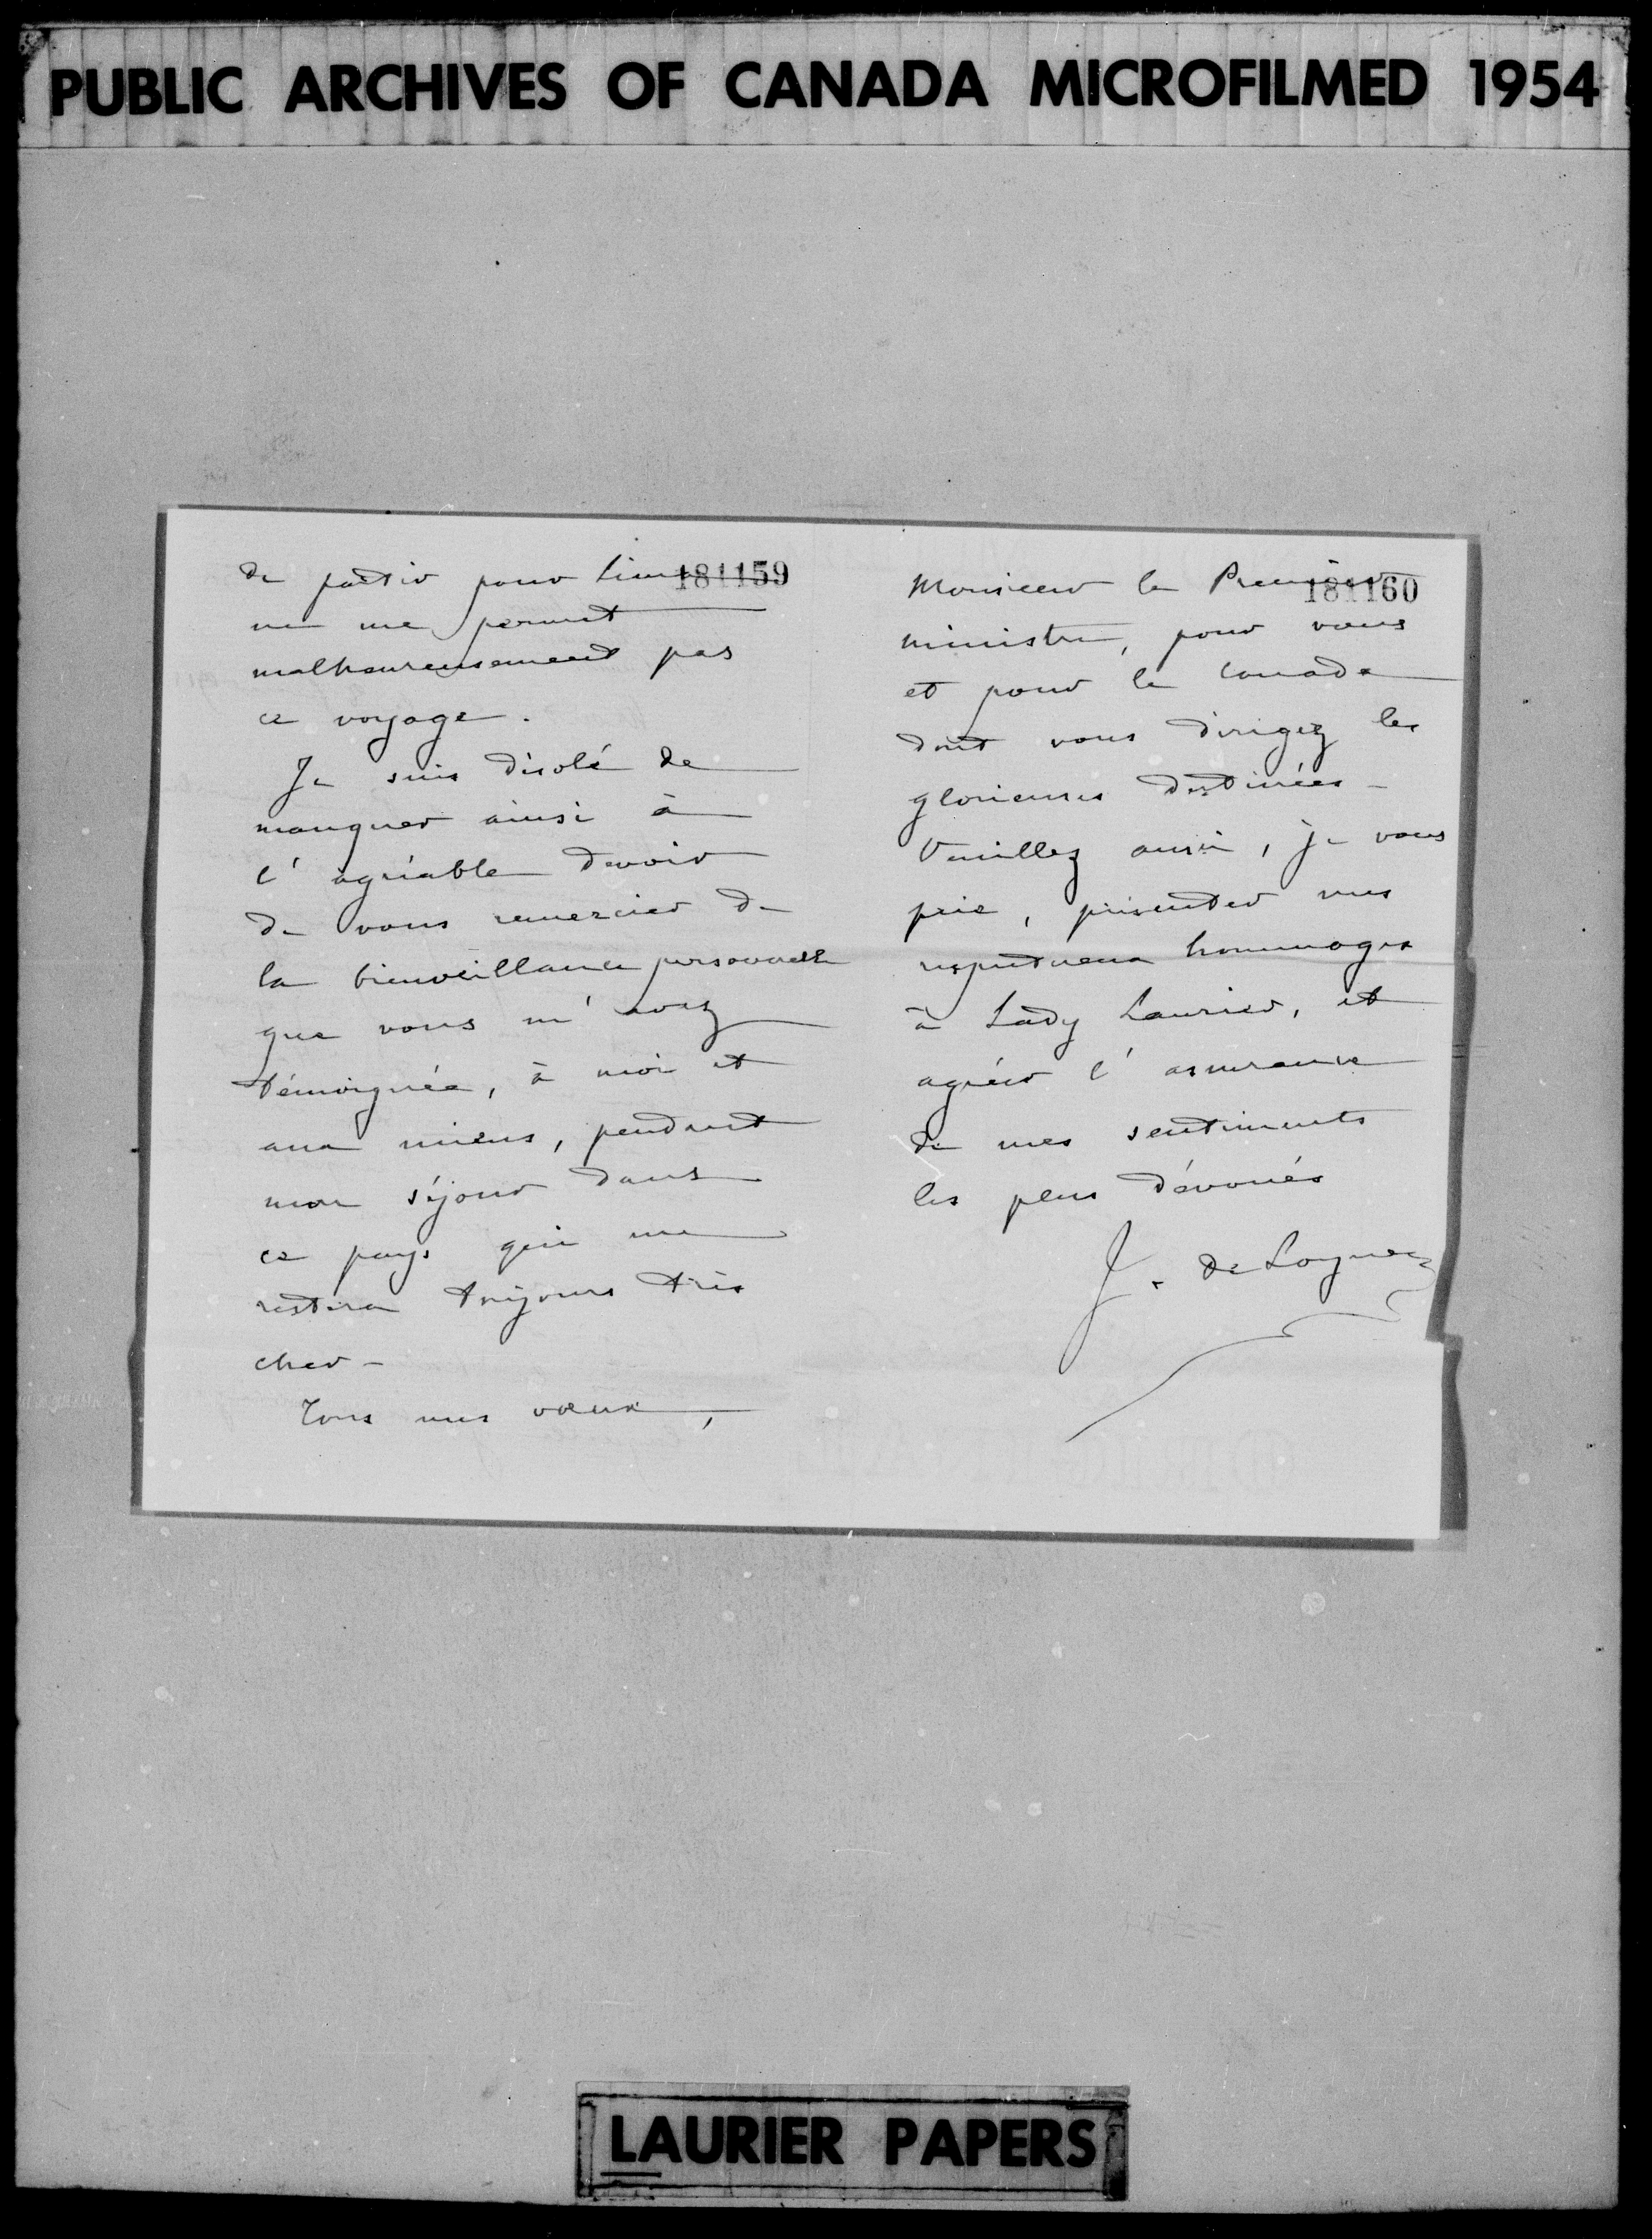 PUBLIC ARCHIVES OF CANADA MICROFILMED 1954
181159
de partir pour Lima
ne me permet
malheureusement pas
ce voyage.
Je suis désolé de
manquer ainsi à
l'agréable devoir
de vous remercier de
la bienveillance personnelle
que vous m'avez
témoignée, à moi et
aux miens, pendant
mon séjour dans
ce pays qui me
restera toujours très
cher -
Tous mes voeux,
181160
Monsieur le Premier
ministre, pour vous
et pour le Canada
dont vous dirigez les
glorieuses destinées -
Veuillez aussi, je vous
prie, présenter mes
respectueux hommages
à Lady Laurier, et
agréer l'assurance
de mes sentiments
les plus dévoués
J. de Loynes
LAURIER PAPERS